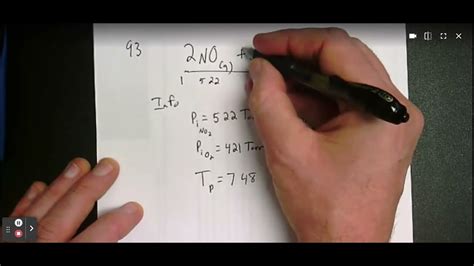 93 2NO(g) +
1 522
Info
Pi NO2 = 522 Torr
Pi O2 = 421 Torr
Tp = 748